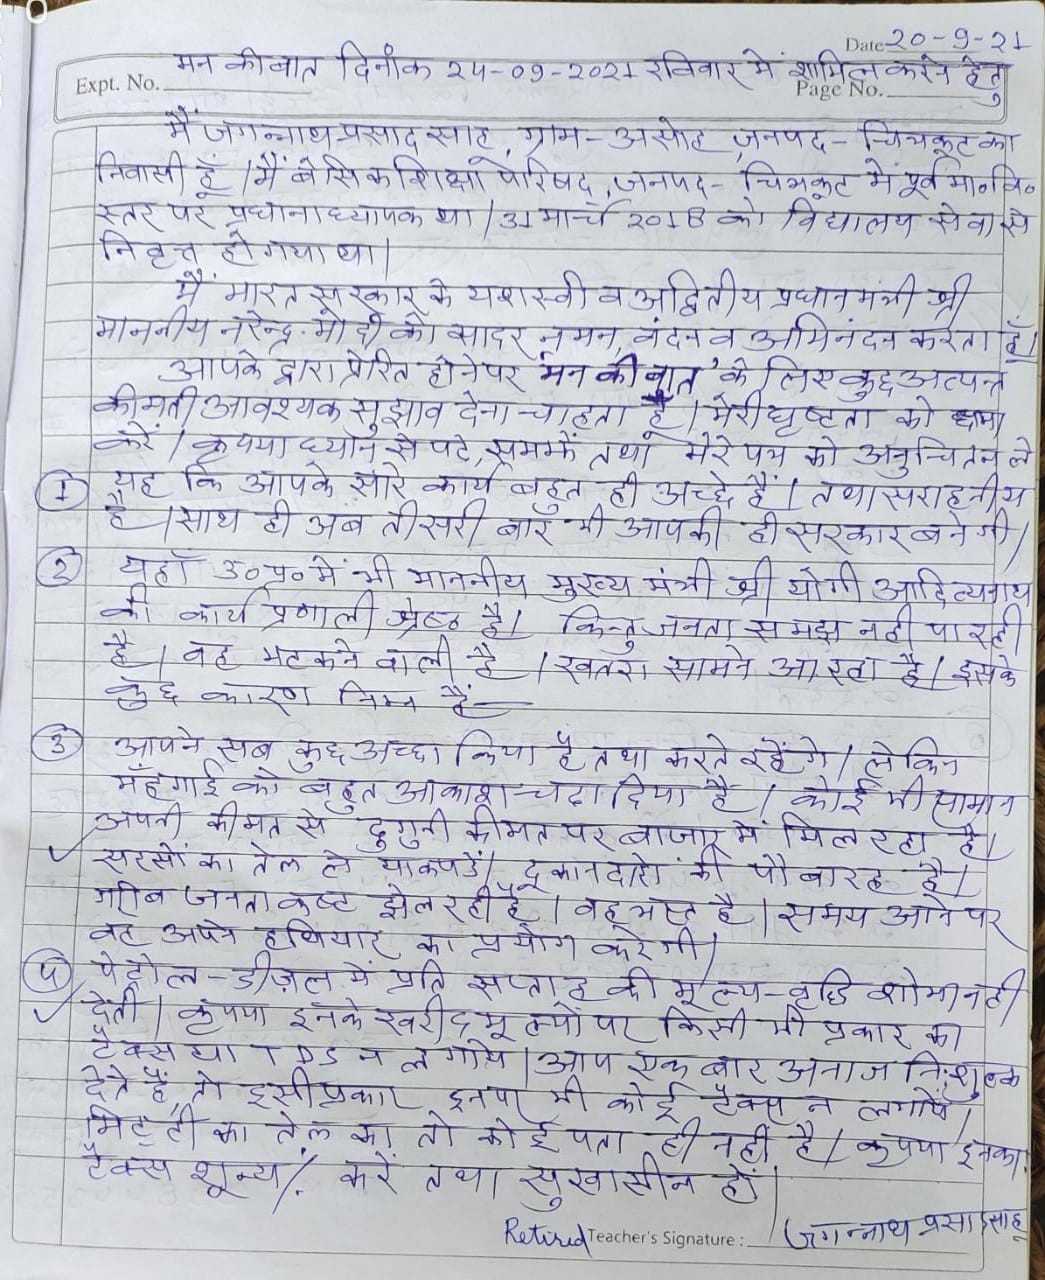 Date 20-9-21
मन की बात दिनांक 24-09-2021 रविवार में शामिल करने हेतु
Expt. No.
Page No.
मैं जगन्नाथ प्रसाद साहू, ग्राम- असोह जनपद- चित्रकूट का
निवासी हूँ। मैं बेसिक शिक्षा परिषद, जनपद- चित्रकूट में पूर्व मा० वि०
स्तर पर प्रधानाध्यापक था। 31 मार्च 2018 को विद्यालय सेवा से
निवृत्त हो गया था।
मैं भारत सरकार के यशस्वी व अद्वितीय प्रधानमंत्री श्री
माननीय नरेन्द्र मोदी को सादर नमन, वंदन व अभिनंदन करता हूँ।
आपके द्वारा प्रेरित होने पर 'मन की बात' के लिए कुछ अत्यन्त
कीमती आवश्यक सुझाव देना चाहता हूँ। मेरी धृष्टता को क्षमा
करें। कृपया ध्यान से पढे, समझें तथा मेरे पत्र को अनुचित न लें
① यह कि आपके सारे कार्य बहुत ही अच्छे हैं। तथा सराहनीय
हैं। साथ ही अब तीसरी बार भी आपकी ही सरकार बनेगी।
② यहाँ उ०प्र० में भी माननीय मुख्य मंत्री श्री योगी आदित्यनाथ
की कार्य प्रणाली श्रेष्ठ है। किन्तु जनता समझ नही पा रही
है। वह भटकने वाली है। खतरा सामने आ रहा है। इसके
कुछ कारण निम्न हैं—
③ आपने सब कुछ अच्छा किया है तथा करते रहेंगे। लेकिन
मँहगाई को बहुत आकाश चढा दिया है। कोई भी सामान
अपनी कीमत से दुगुनी कीमत पर बाजार में मिल रहा है।
सरसों का तेल ले या कपडें। दूकानदारों की पौ बारह है।
गरीब जनता कष्ट झेल रही है। वह भ्रष्ट है। समय आने पर
वह अपने हथियार का प्रयोग करेगी।
④ पेट्रोल-डीज़ल में प्रति सप्ताह की मूल्य-वृद्धि शोभा नही
देती। कृपया इनके खरीद मूल्यों पर किसी भी प्रकार का
टैक्स या TDS न लगाये। आप एक बार अनाज निःशुल्क
देते हैं, तो इसी प्रकार इनपर भी कोई टैक्स न लगाये।
मिट्टी का तेल का तो कोई पता ही नहीं है। कृपया इनका
टैक्स शून्य/. करें तथा सुखासीन हों।
Retired Teacher's Signature : जगन्नाथ प्रसाद साहू